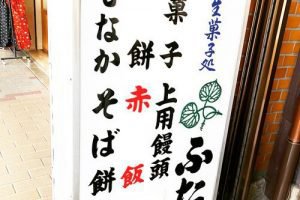 生菓子処
ふた
上用饅頭
菓子
餅 赤飯
もなか そば餅